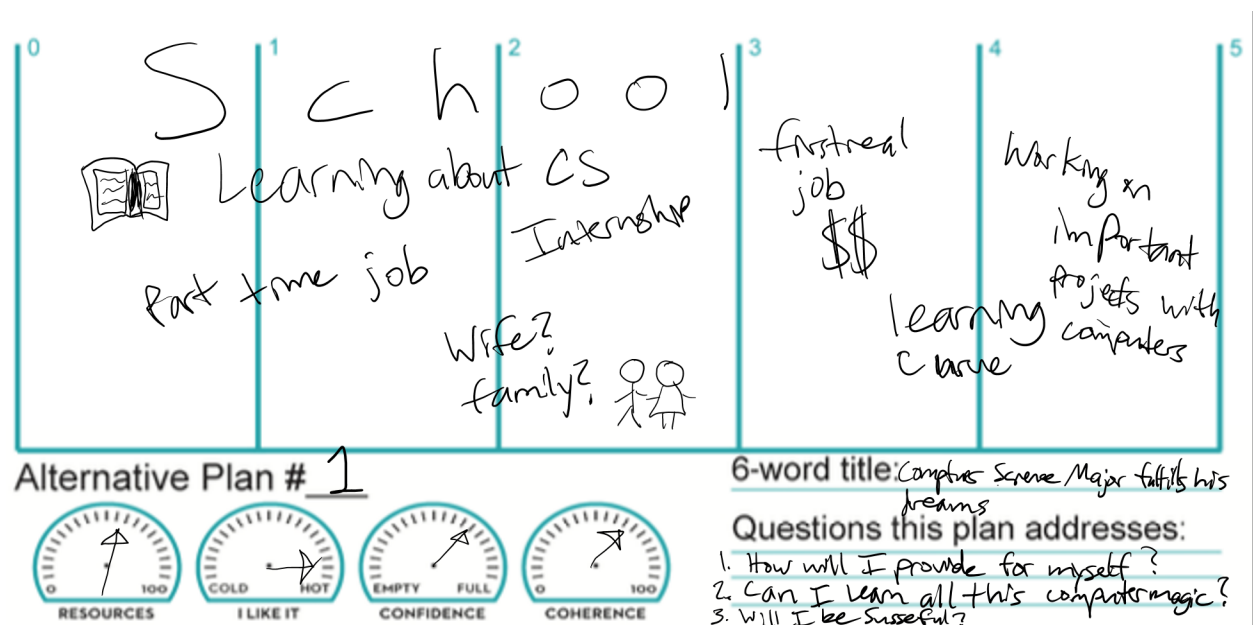 0 1 2 3 4 5
School
Learning about CS
Internship
Part time job
Wife?
family?
first real
job
$$
learning
curve
Working on
important
projects with
computers
Alternative Plan # 1
0 100
RESOURCES
COLD HOT
I LIKE IT
EMPTY FULL
CONFIDENCE
0 100
COHERENCE
6-word title: Computer Science Major fulfills his
dreams
Questions this plan addresses:
1. How will I provide for myself?
2. Can I learn all this computer magic?
3. Will I be Susseful?